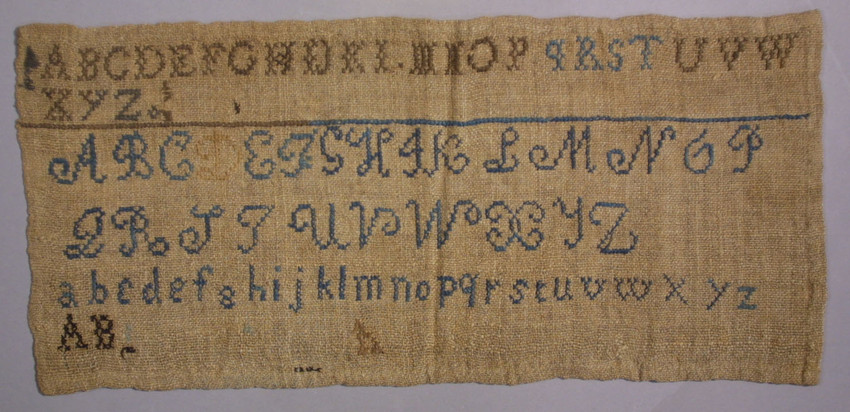 ABCDEFGHIJKL.MNOP qRSTUVW
XYZ&
ABCDEFGHIKLMNOP
QRSTUVWXYZ
abcdefghijklmnopqrstuvwxyz
AB